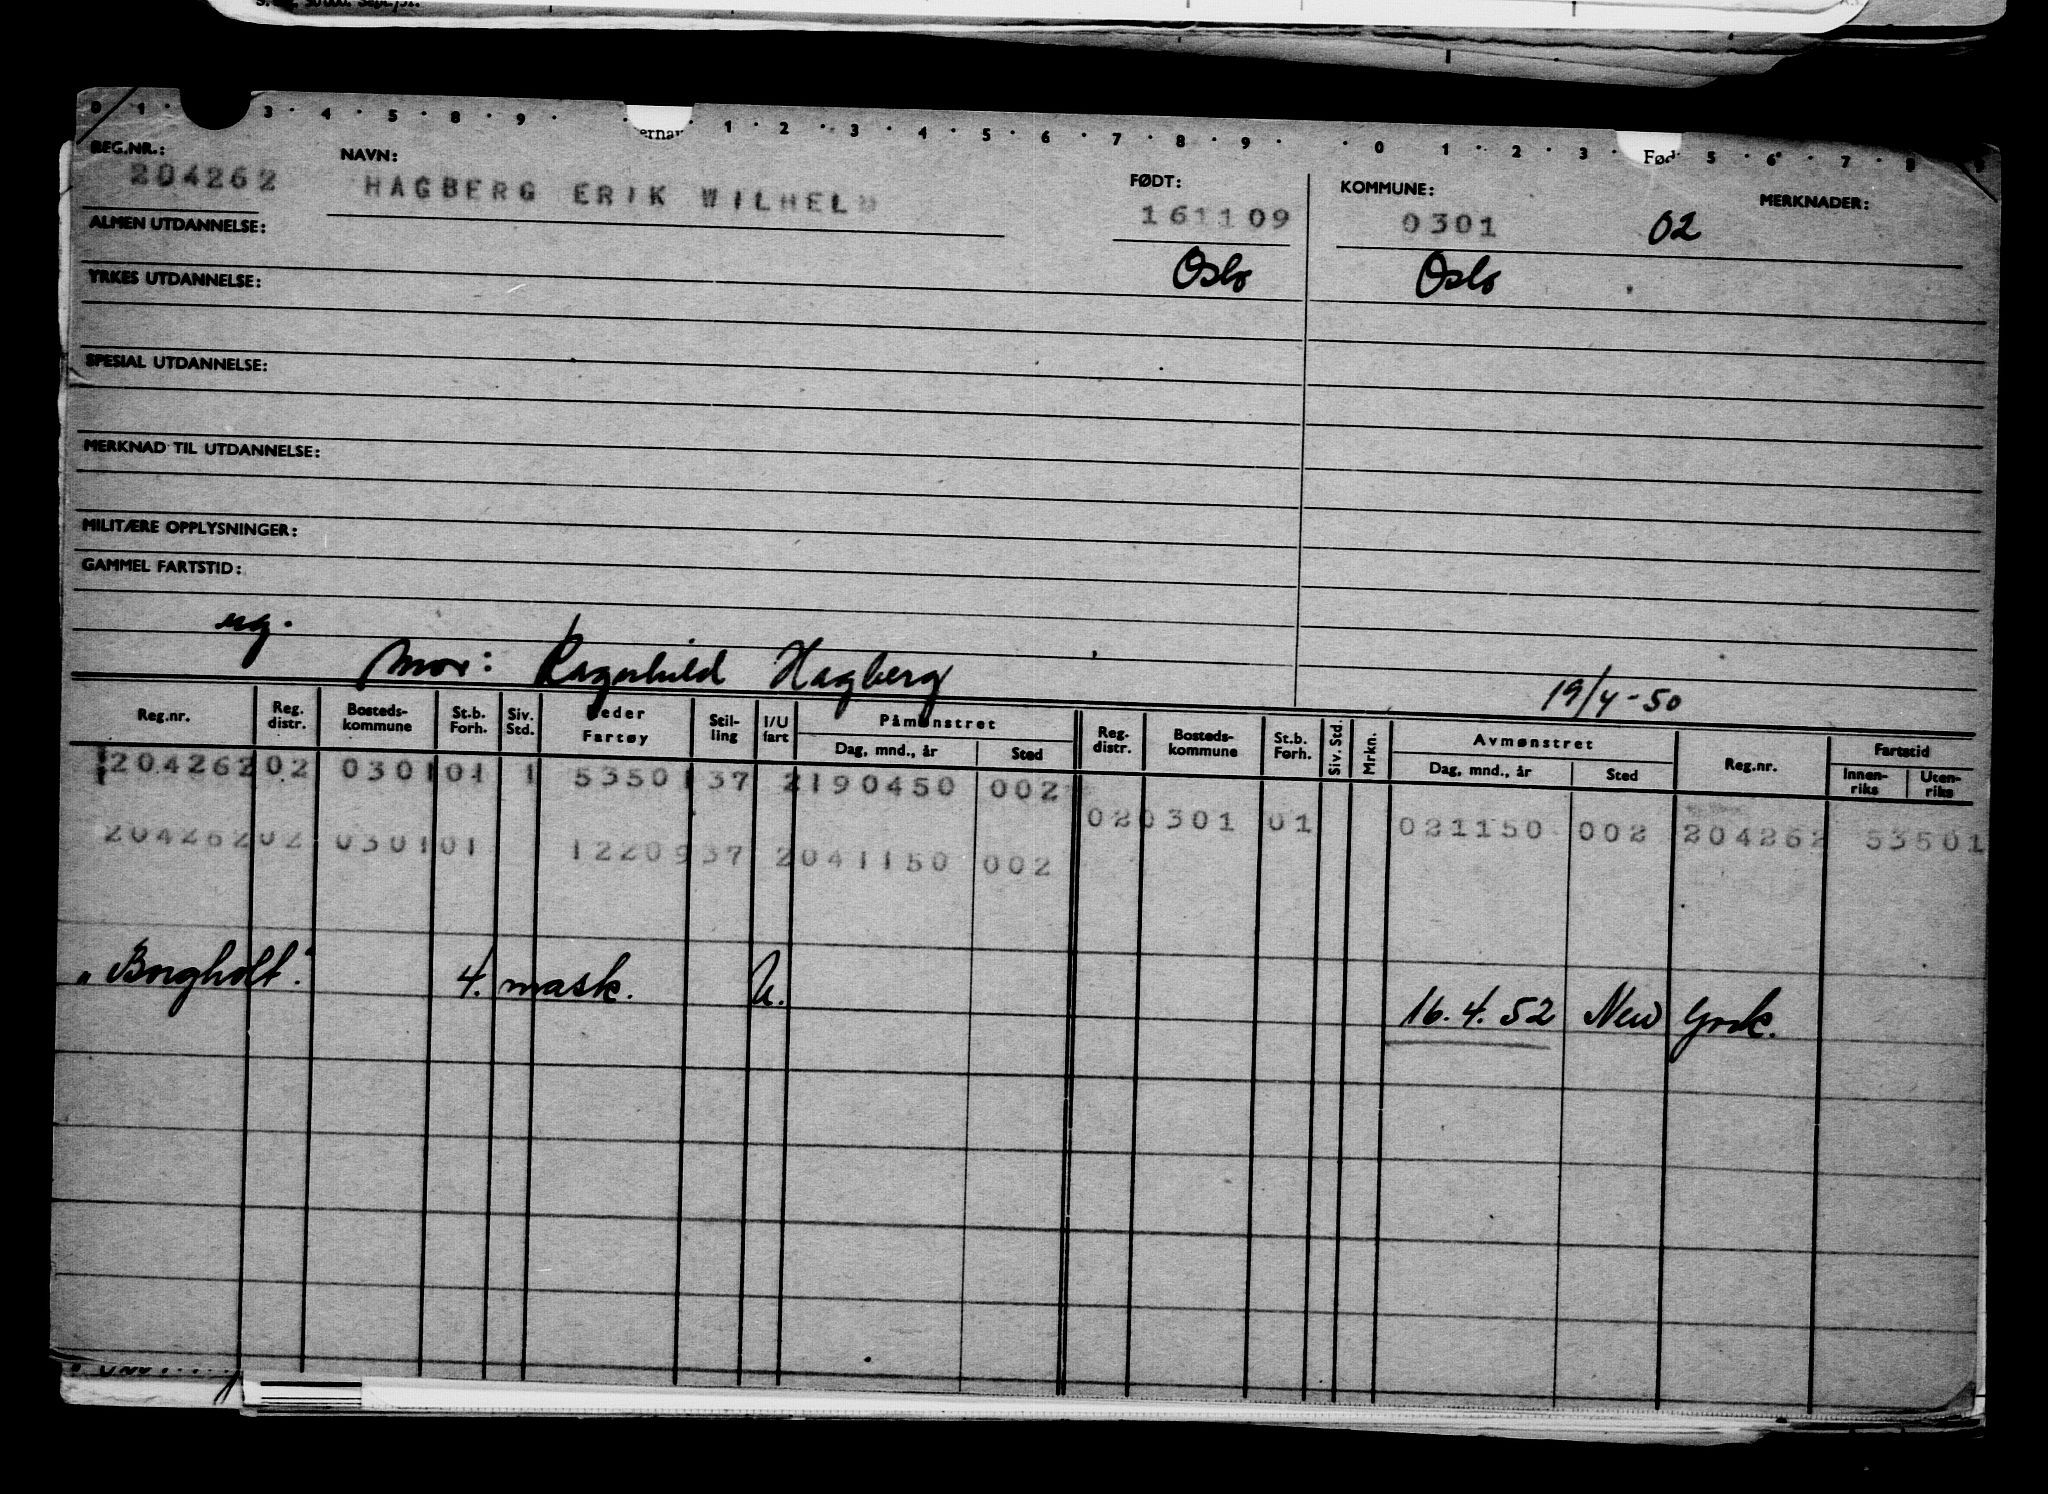 0 1 · 3 · 4 · 5 · 8 · 9 · · 1 · 2 · 3 · 4 · 5 · 6 · 7 · 8 · 9 · · 0 1 · 2 · 3 · 5 · 6 · 7 · 8
REG.NR.: NAVN: FØDT: KOMMUNE: MERKNADER:
204262 HAGBERG ERIK WILHELM 161109 0301 02
ALMEN UTDANNELSE: Oslo Oslo
YRKES UTDANNELSE:
SPESIAL UTDANNELSE:
MERKNAD TIL UTDANNELSE:
MILITÆRE OPPLYSNINGER:
GAMMEL FARTSTID:
ug.
Mor: Ragnhild Hagberg 19/4-50
Reg.nr. Reg. distr. Bosteds-kommune St.b. Forh. Siv. Std. Reder Fartøy Stil-ling I/U fart Påmønstret Dag, mnd., år Sted Reg. distr. Bosteds-kommune St.b. Forh. Siv. Std. Mrkn. Avmønstret Dag, mnd., år Sted Reg.nr. Fartstid Innen-riks Uten-riks
204262 02 0301 01 1 53501 37 2 190450 002
02 0301 01 021150 002 204262 53501
204262 02 0301 01 12209 37 2 041150 002
"Borgholt". 4. mask. U. 16.4.52 New York.